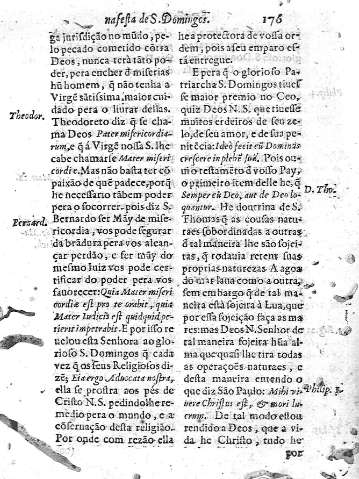 na festa de S. Domingos. 176
ga jurisdição no mũdo, pe-
lo pecado cometido cõtra
Deos, nunca terà tãto po-
der, pera encher d̃ miserias
hũ homem, q̃ não tenha a
Virgẽ sãtissima, maior cui-
dado pera o liurar dellas.
Theodor.
Theodoreto diz q̃ se cha-
ma Deos Pater misericordia-
rum, e q̃ á Virgẽ nossa S. lhe
cabe chamarse Mater miseri-
cordie. Mas não basta ter cõ
paixão de quẽ padece, porq̃
he necessario tãbem poder
pera o socorrer. pois diz S.
Bernard.
Bernardo ser Mãy de mise-
ricordia, vos pode segurar
da brãdura pera vos alcan-
çar perdão, e ser mãy do
mesmo juiz vos pode cer-
tificar do poder pera vos
fauorecer: Quia Mater miseri
cordiæ est pro te orabit, quia
Mater Iudicis est quidquid pe-
tierit impetrabit. E por isso re
uelou esta Senhora ao glo-
rioso S. Domingos q̃ cada
vez q̃ os seus Religiosos di-
zẽ; Eia ergo Aduocata nostra,
ella se prostra aos pés de
Christo N. S. pedindolhe re-
medio pera o mundo, e a
cõseruação desta religião.
Por onde com rezão ella
he a protectora de vossa or-
dem, pois a seu emparo es-
tá entregue.
E pera q̃ o glorioso Pa-
triarcha S. Domingos tiues
se maior premio no Ceo,
quiz Deos N. S. que tiuesse
muitos erdeiros de seu ze-
lo, de seu amor, e de sua pe-
nitẽcia: Ideò fecit eũ Dominus
crescere in plebẽ suã. Pois ou-
uio testamẽto d̃ vosso Pay,
D. Tho.
o primeiro item delle he, q̃
Semper cũ Deo, aut de Deo lo-
quatur. He doutrina de S.
Thomas q̃ as cousas natu-
raes sobordinadas a outras
de tal maneira lhe são sojei-
tas, q̃ todauia retem suas
proprias naturezas. A agoa
do mar laua como a outra,
sem embargo q̃ de tal ma-
neira està sojeita á Lua, que
por essa sojeição faça as ma
res: mas Deos N. Senhor de
tal maneira sojeita hũa al
ma que quasi lhe tira todas
as operações naturaes, e
desta maneira entendo o
Philip. 1.
que diz São Paulo: Mihi vi-
uere Christus est, & mori lu-
crum. De tal modo estou
rendido a Deos, que a vi-
da he Christo, tudo he
por